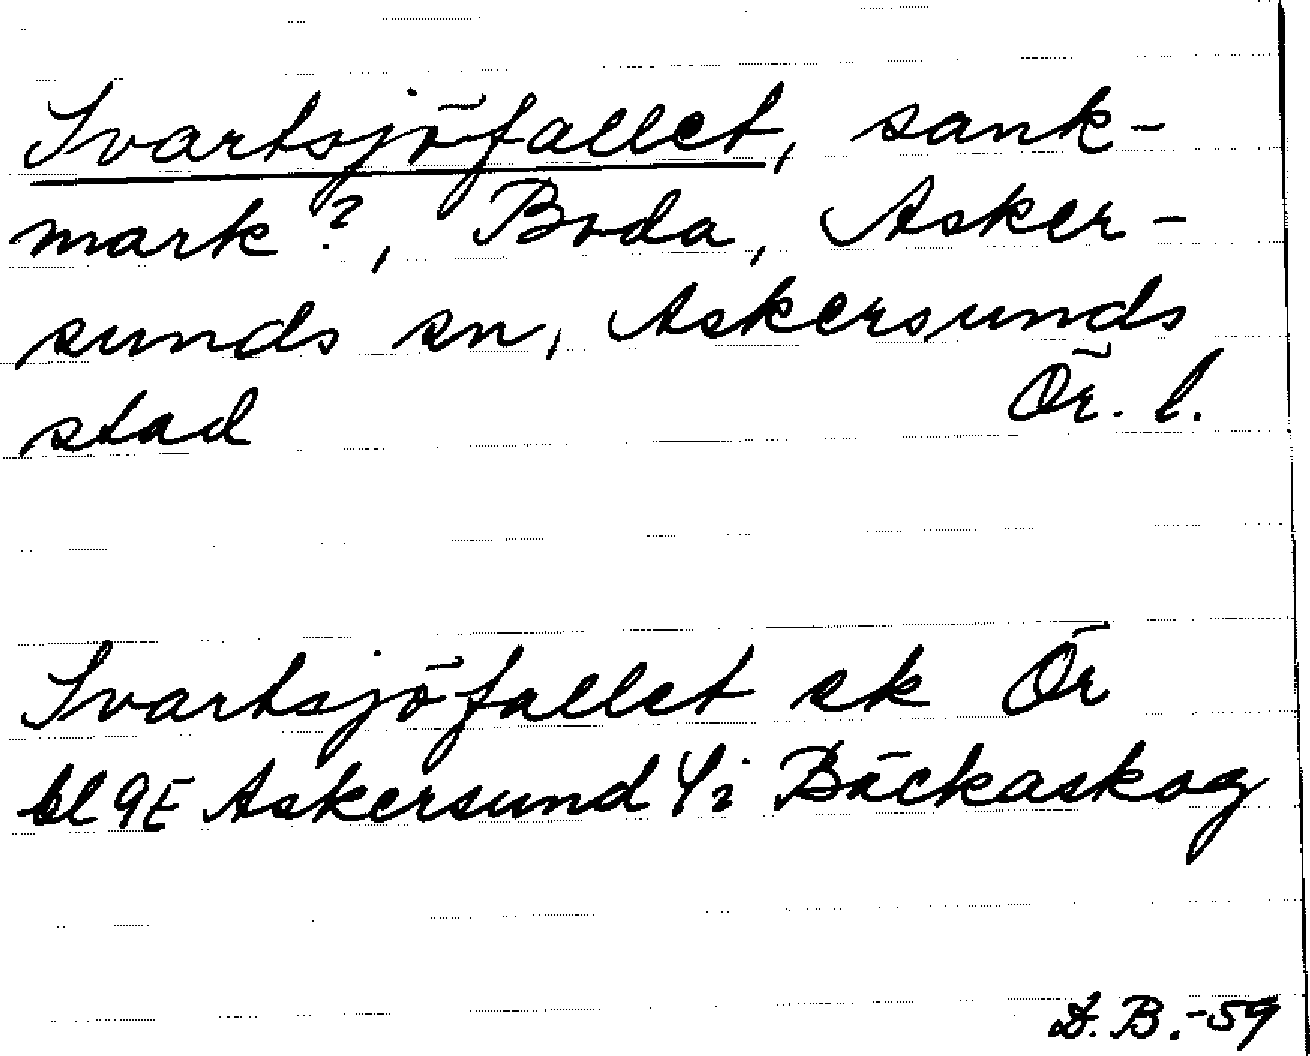 Svartsjöfallet, sank-
mark?, Boda, Asker-
sunds sn, Askersunds
stad Ör. l.
Svartsjöfallet ek Ör
bl 9E Askersund 4i Bäckaskog
D.B.-59